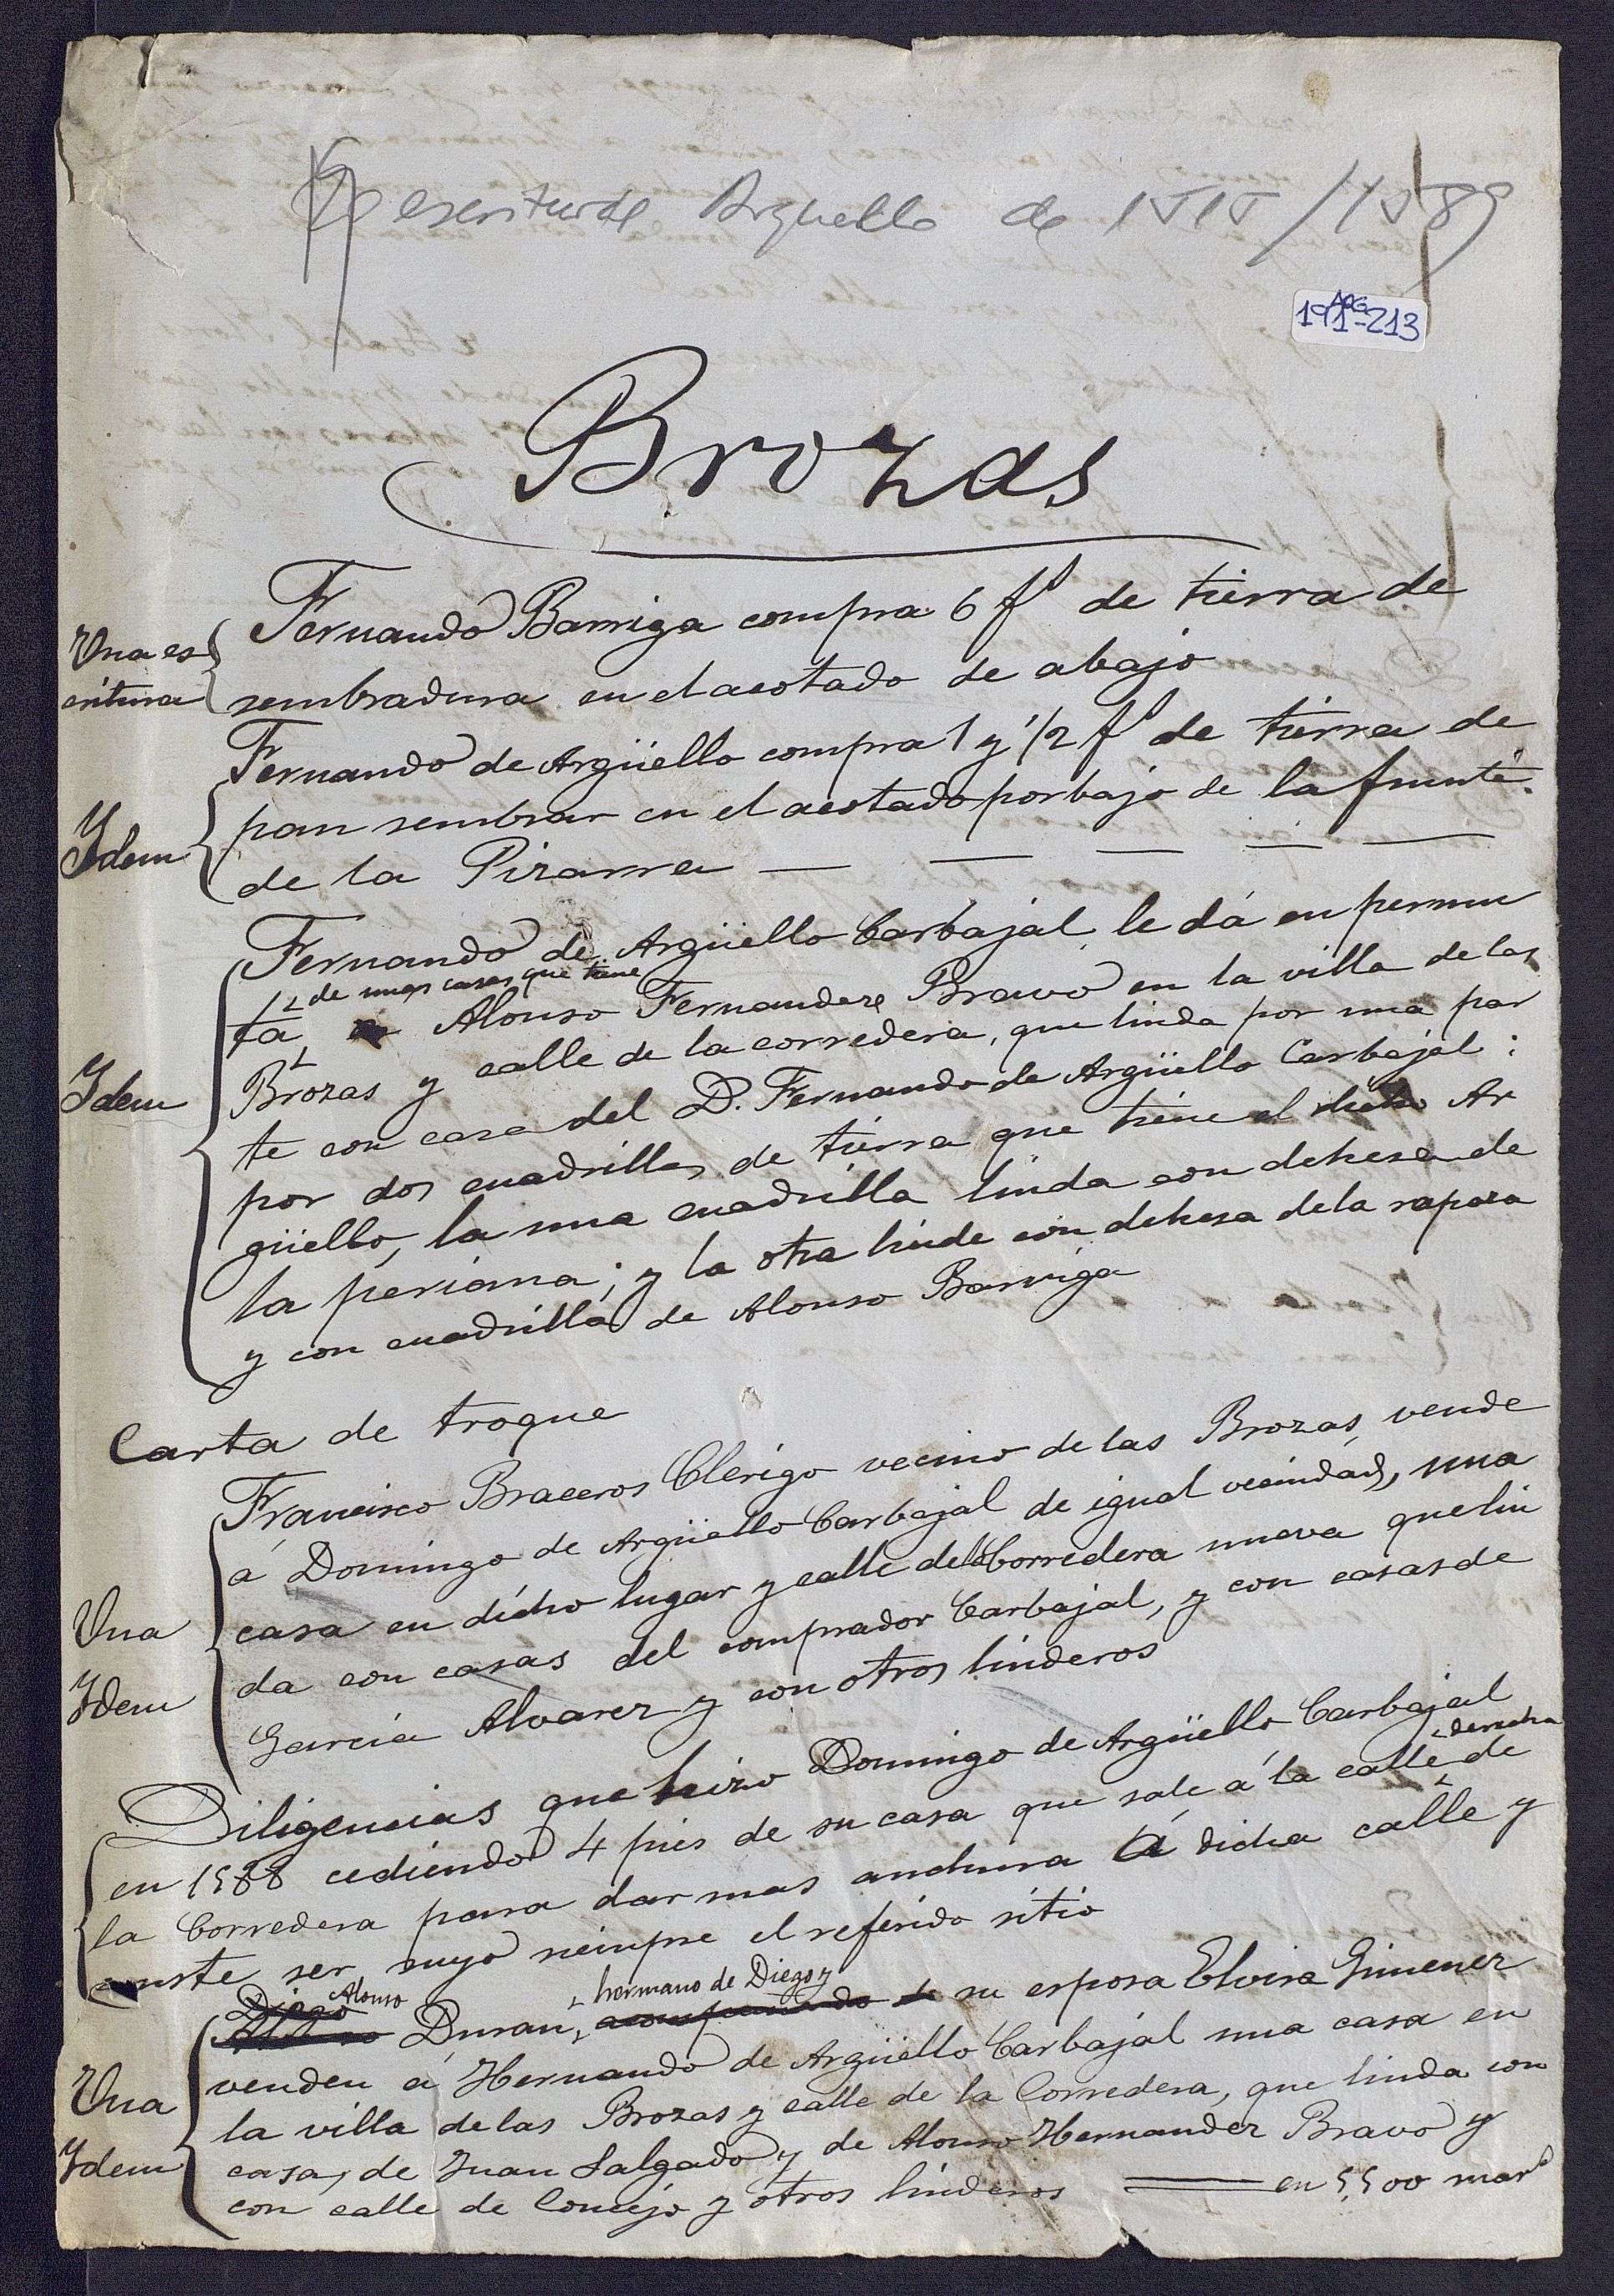 escrituras Arguello de 1515/1589
APG
191-213
Brozas
Una es
critura
Fernando Barriga compra 6 fs de tierra de
sembradura en el acotado de abajo
Idem
Fernando de Argüello compra 1 y 1/2 fs de tierra de
pan sembrar en el acotado por bajo de la fuente
de la Pizarra
Idem
Fernando de Argüello Carbajal le dá en permu
1/2 de unas casas que tiene
ta Alonso Fernandez Bravo en la villa de las
Brozas y calle de la corredera, que linda por una par
te con casa del D. Fernando de Argüello Carbajal:
por dos cuadrillas de tierra que tiene el dicho Ar
güello, la una cuadrilla linda con dehesa de
la periama; y la otra linde con dehesa de la raposa
y con cuadrilla de Alonso Barriga
Carta de troque
Una
Idem
Francisco Braceros Clérigo vecino de las Brozas, vende
á Domingo de Argüello Carbajal de igual vecindad, una
casa en dicho lugar y calle de la Corredera nueva que lin
da con casas del comprador Carbajal, y con casas de
García Alvarez y con otros linderos
Diligencias que hizo Domingo de Argüello Carbajal
derecha
en 1588 cediendo 4 pies de su casa que sale á la calle de
la Corredera para dar mas anchura á dicha calle y
conste ser suyo siempre el referido sitio
Una
Idem
Diego Alonso hermano de Diego y
Duran, su esposa Elvira Gimenez
venden á Hernando de Argüello Carbajal una casa en
la villa de las Brozas y calle de la Corredera, que linda con
casas de Juan Salgado y de Alonso Hernandez Bravo y
con calle de Concejo y otros linderos en 5500 mars